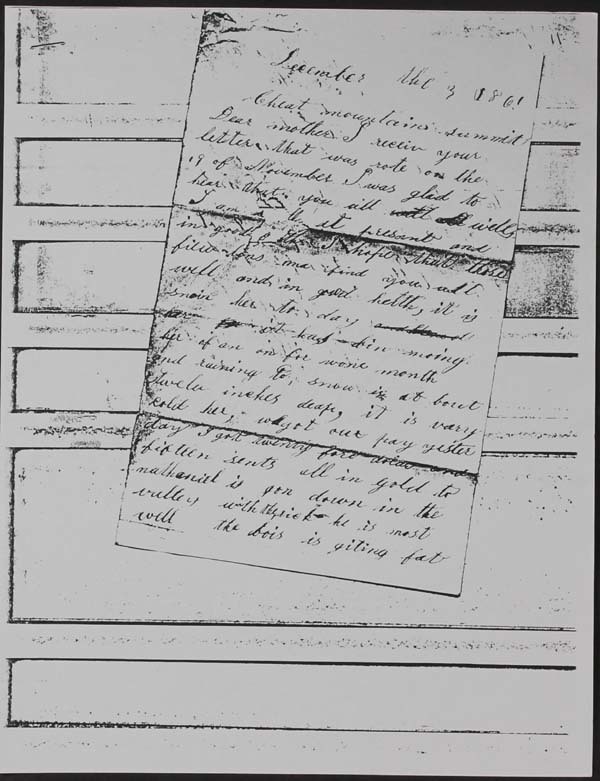 December the 3 1861
Cheat mountains summit
Dear mother I receiv your
letter that was rote on the
19 of November I was glad to
hear that you all well
I am at present and
in good I hope that these
few lins ma find you all
well and in good helth, it is
snoin her to day
it has bin
her of an on for wone month
and raining to, snow is at bout
twelv inches deap, it is vary
cold her, we got our pay yister
day I got twenty fore dolar and
fifteen sents all in gold to
nathaniel is gon down in the
valley with the sick he is most
well the bois is giting fat